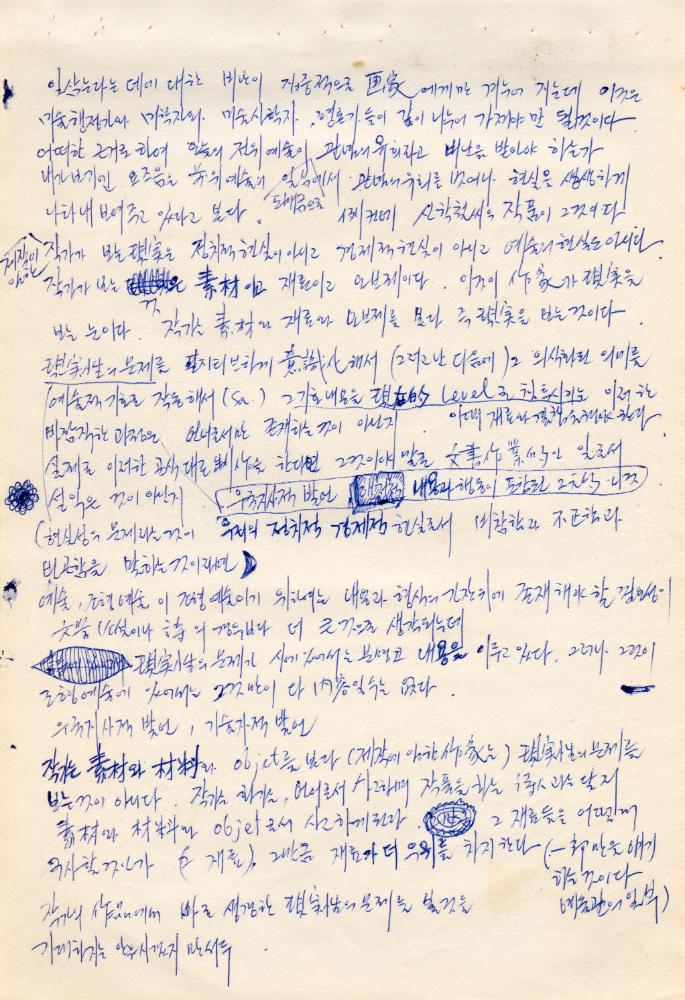 일삼는다는 데에 대한 비난이 집중적으로 画家에게만 겨누어 지는데 이것은
미술행정가와 미학자와 미술사학자, 평론가들이 같이 나누어 가져야만 될것이다
어떠한 근거로 하여 오늘의 전위예술이 관념의 유희라고 비난을 받아야 하는가
내가 보기엔 요즈음 전위예술의 일각에서 관념의 유희를 벗어나 현실을 생생하게
나타내 보여주고 있다고 본다. 예컨데 신학철씨의 작품이 그것이다
작가가 보는 現実은 정치적 현실이 아니고 경제적 현실이 아니고 예술의 현실도 아니다.
제작에 임한
작가가 보는 것은 素材이고 재료이고 오브제이다. 이것이 作家가 現実을
보는 눈이다. 작가는 素材와 재료와 오브제를 본다 즉 現実을 보는 것이다.
現実의 문제를 포지티브하게 意識化해서 (그리고난 다음에) 그 의식화된 의미를
(예술적 기호로 작용해서 (Sa) 그 기호내용을 現在的 level로 침투시키는 이러한
바람직한 과정은 언어로서만 존재하는 것이 아닌지 어떤 재료와 결합
실제로 이러한 공식대로 한다면 그것이야 말로 文書作業 일로서
설익은 것이 아닌지 우국지사적 발언 내용과 행동이 포함된
(현실성의 문제라는 것이 우리의 정치적 경제적 현실로서 비참함과 不正함과
빈곤함을 말하는 것이라면)
예술, 조형예술이 조형예술이기 위하여는 내용과 형식의 존재해야 할 필요성이
소설이나 詩의 경우보다 더 큰 것으로 생각되는데
現実의 문제가 시에 있어서는 분명코 내용을 이루고 있다. 그러나 그것이
조형예술에 있어서는 그것만이 다 内容일 수는 없다.
우국지사적 발언, 기술자적 발언
작가는 素材와 材料와 objet를 본다 (제작에 임한 作家는) 現実의 문제를
보는 것이 아니다. 작가는 화가는, 언어로서 사고하며 작품을 하는 詩人과는 달리
素材와 材料와 objet로서 사고하게된다. 그 재료들을 어떻게
구사할 것인가 (는 재료), 그만큼 재료가 더 우위를 차지한다 (一部만을 얘기
하는 것이다
예술관의 일부)
작가의 작품에서 바로 생경한 現実의 문제를 볼 것을
기대하지는 않으시겠지만서두.